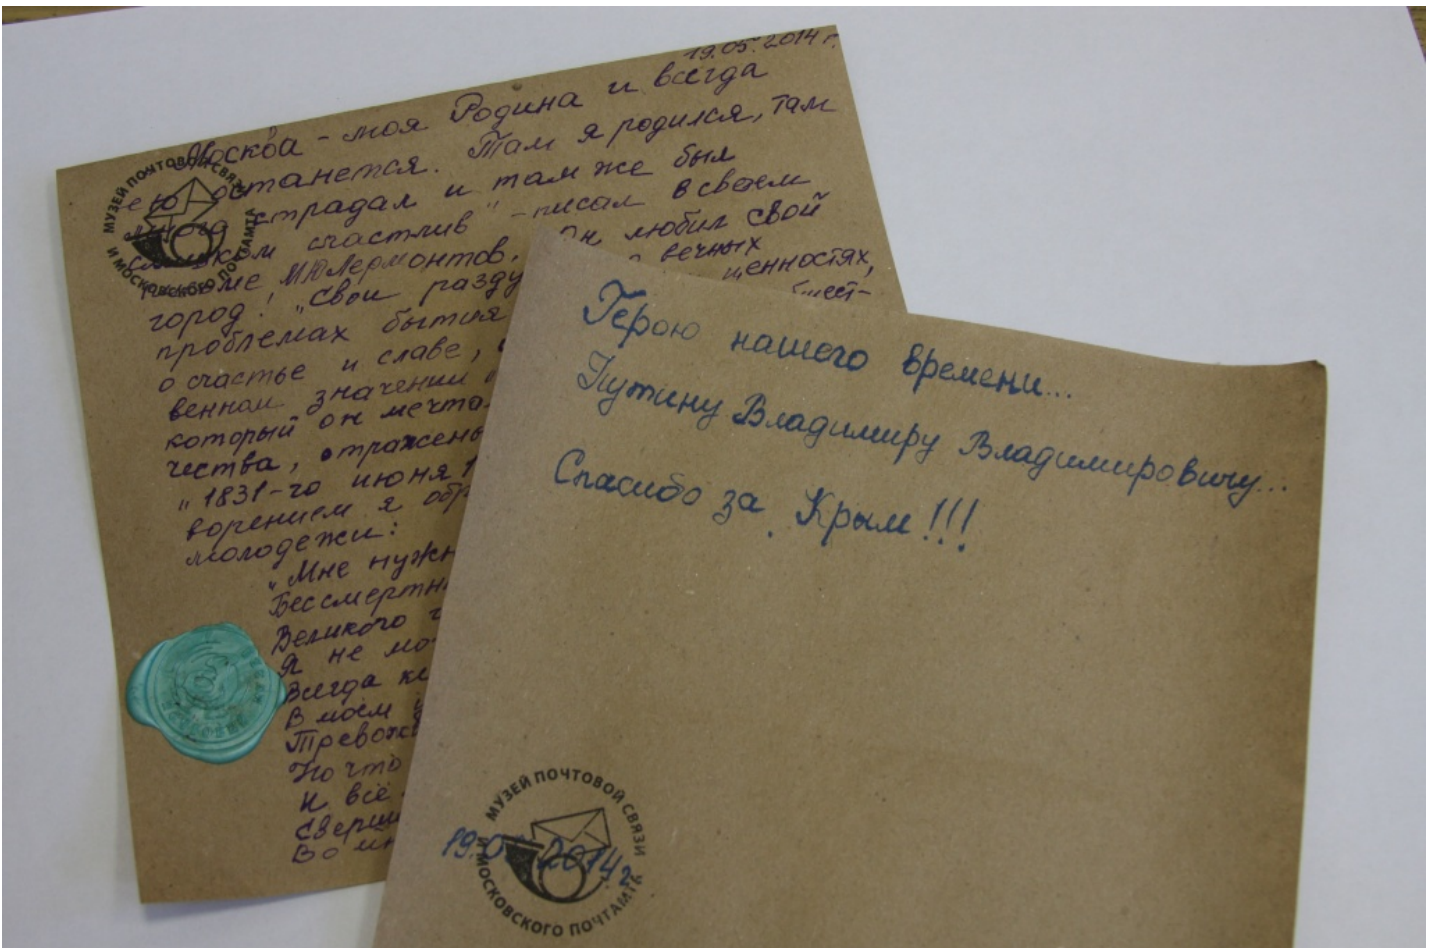 19.05.2014 г.
Москва - моя Родина и всегда
ею останется. Там я родился, там
много страдал и там же был
слишком счастлив" - писал в своем
МЮЛермонтов. Он любил свой
город! "Свои разду вечных
проблемах бытия ценностях,
о счастье и славе,
венном значении
который он мечта
чества, отражены
"1831-го июня 1
ворением я обр
молодежи:
"Мне нужн
Бессмертн
Великого
Я не мо
Всегда ки
В моём
Тревож
Но что
И всё
Сверш
Во мн
МУЗЕЙ ПОЧТОВОЙ СВЯЗИ
И МОСКОВСКОГО ПОЧТАМТА
Герою нашего времени...
Путину Владимиру Владимировичу...
Спасибо за Крым!!!
МУЗЕЙ ПОЧТОВОЙ СВЯЗИ
И МОСКОВСКОГО ПОЧТАМТА
19.05.2014г.